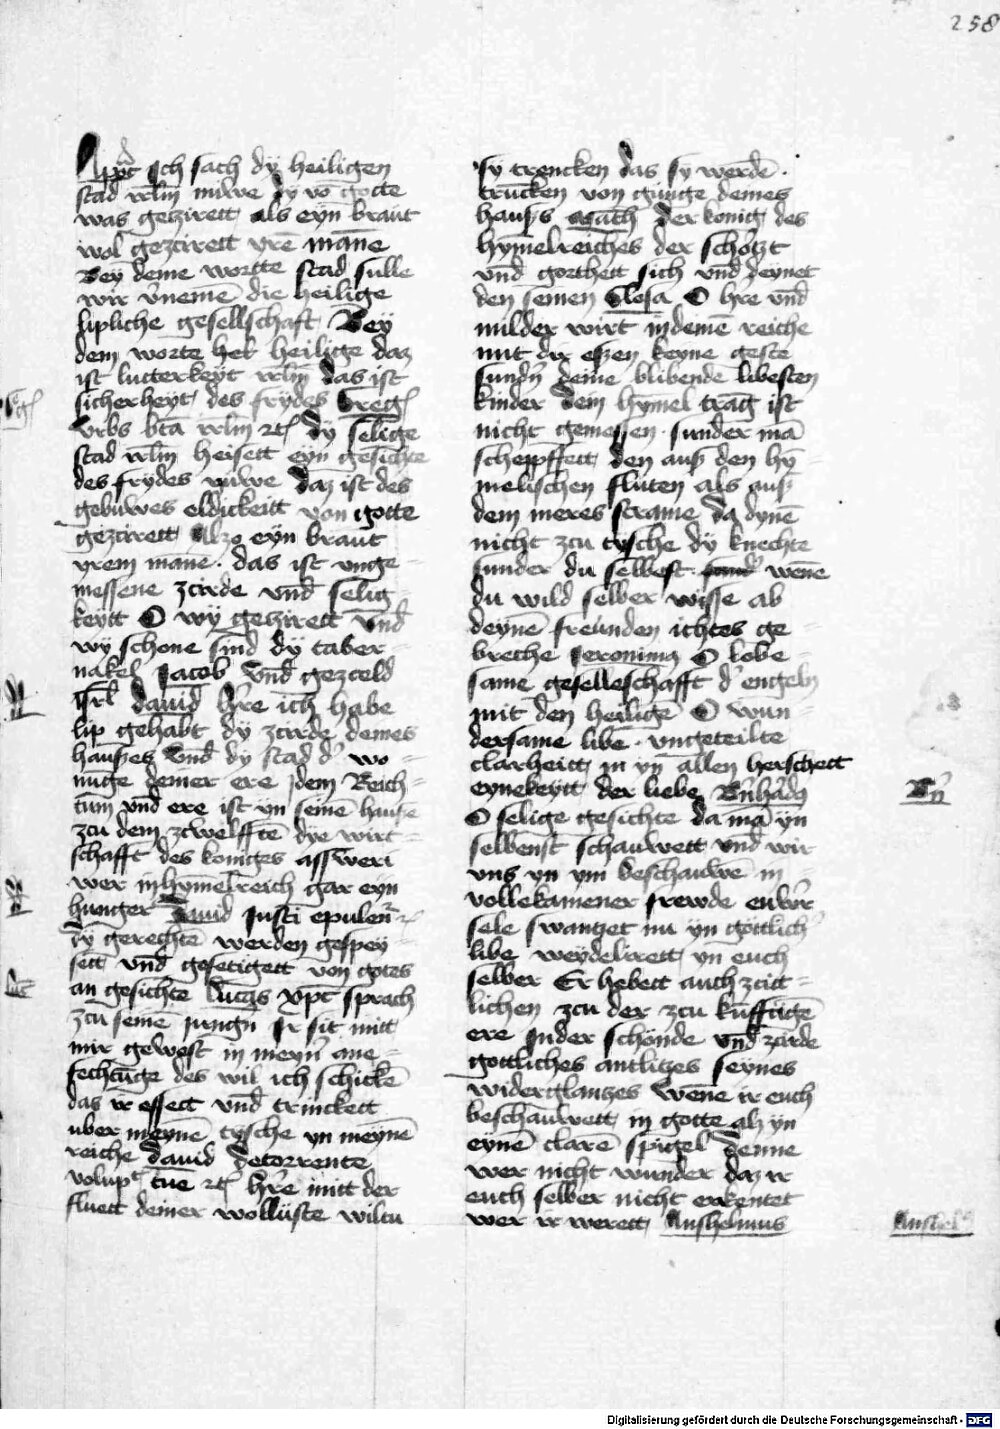 258
Apoc̄ Ich sach dy heiligen
stad irl̄m nuwe dy vō gotte
was geczirett als eyn braut
wol geczirett yrē māne
Bey deme wortte stad sulle
wir v̓nemē die heilige
lipliche gesellschaft Bey
dem worte heilige daz
ist lutterkeyt irl̄m das ist
sicherheyt des frydes Greg
vrbs bt̄a irl̄m etc̄ dy selige
stad irl̄m heisett eyn gesichte
des frydes nuwe daz ist des
gebuwes eldickeitt von gotte
geczirett Alzo eyn braut
yrem māne · das ist vnge=
messene zcirde vnd̄ selig=
keytt O wy geczirett vnd̄
wy schone sind dy taber=
nakel Jacob vnd̄ geczeld
isrl̄ dauid h̓re ich habe
lip gehabt dy zcirde demes
hauszes vnd̄ dy stad d̓ wo=
nūge deiner ere jdem Reich=
tum vnd ere ist yn seinē hausē
zcu dem zcwelfftē dye wirt=
schafft des koniges assweri
wer in hȳmelreich gar eyn
hunger Dauid Justi epulen̄t
dy gerechtē werden gespey=
sett vnd̄ gesetigett von gotes
an gesichte Lucas xp̄c sprach
zcu seinē jungn̄ Jr sit mitt
mir gewest in meyn̓ ane=
fechtūge des wil ich schickē
das ir essett vnd̄ trinckett
uber meynē tysche yn meynē
reiche dauid de torrente
volupt̄ tue etc̄ h̓re mitt der
fluett deiner wollüste wiltu
sy trencken das sy werdē ·
truckēn von gunge demes
hauses der konig des
hȳmelreiches der schortzt
vnd̄ gorthett sich vnd̄ deynet
den seinen Glosa O h̓re vnd̄
milder wirt in deinē reiche
mit dir essen keyne geste
sund̓n deine blibende libesten
kinder dem hȳmel trag ist
nicht gemessen · sunder mā
scheppffett den ausz den hȳ=
melischen fluten als ausz
dem meres strame da dynē
nicht zcu tysche dy knechte
sunder du selbest wēne
du wild selber wisse ab
deynē freunden ichtes ge
breche Jeronimus O lobe=
same geselleschafft d̓ engeln
mit den heiligē O wun=
dersame libe · vngeteilte
clarheitt in yn̄ allen herschett
eynekeytt der liebe Bn̓hard̓
O selige gesichte da mā yn
selbenst schauwett vnd̄ wir
vns yn ym beschauwē in
vollekamener frewde euw̓r
sele swanget nu yn gottlich̓
libe weydelrett yn euch
selber Er hebett auch zcitt=
lichen zcu der zcu kūfftigē
ere Inder schonde vnd̄ zcirde
gottliches antlitzes seynes
widerglantzes wēne ir euch
beschauwett in gotte alz yn
eynē clarē spigel denne
wer nicht wunder daz ir
euch selber nicht erkentet
wer ir werett Anshelmus
Bn̄
Anshel
Digitalisierung gefördert durch die Deutsche Forschungsgemeinschaft - DFG